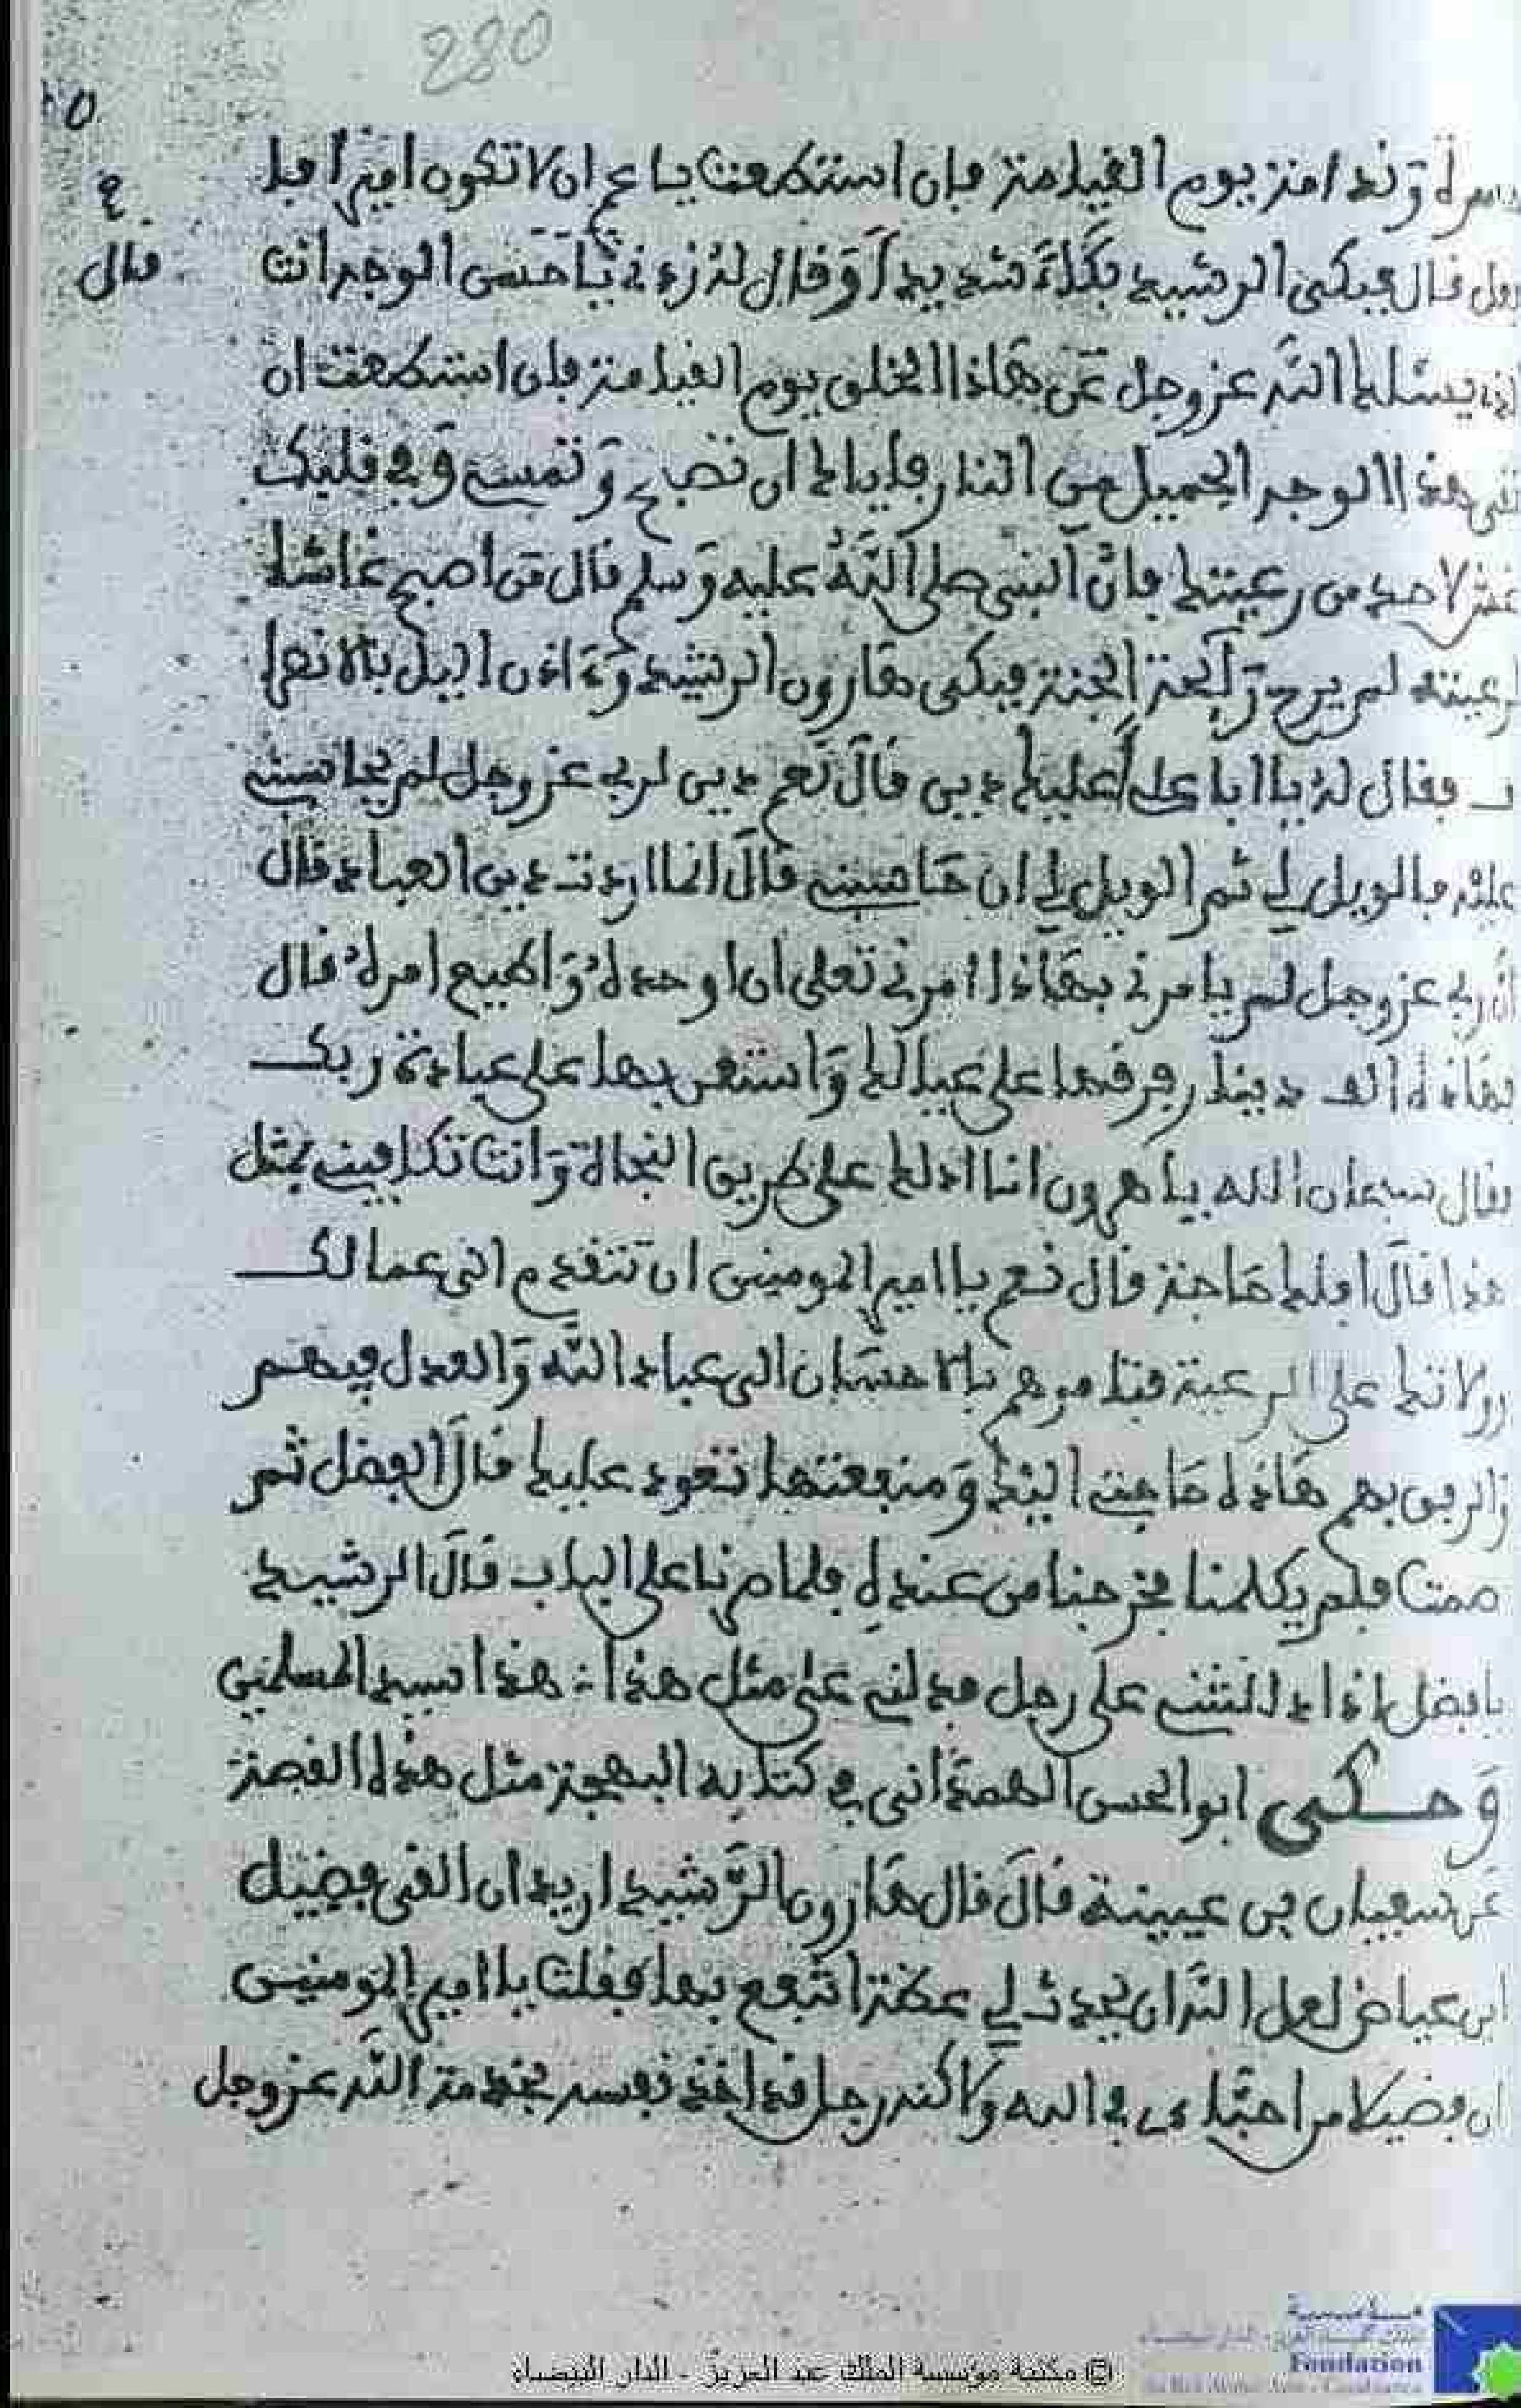 280
حسرة وندامة يوم القيامة فإن استطعت يا عم ان لا تكون اميرا فا
فعل قال فبكى الرشيد بكاء شديدا وقال له زدني يا حسن الوجه انت
قال
الذي يسئلك الله عز وجل عن هاذا الخلق يوم القيامة فإن استطعت ان
تقي هذا الوجه الجميل من النار فإياك ان تصبح وتمسي وفي قلبك
غش لاحد من رعيتك فإن النبي صلى الله عليه وسلم قال من اصبح غاشا
لرعيته لم يرح رآيحة الجنة فبكى هارون الرشيد
فقال له يا ابا علي أعليك دين قال نعم دين لربي عز وجل لم يحاسبني
عليه فالويل لي ثم الويل لي ان حاسبني قال انما اردت دين العباد قال
ان ربي عز وجل لم يامرني بهاذا امرني تعلى ان اوحده واطيع امره قال
بهاذه الف دينار فرقها على عيالك واستعن بها على عبادة ربك
فقال سبحان الله يا هرون انا ادلك على طريق النجاة وانت تكافيني بمثل
هذا قال افلك حاجة قال نعم يا امير المومنين ان تتقدم الى عمالك
وولاتك على الرعية فتامرهم بالاحسان الى عباد الله والعدل فيهم
والرفق بهم هاذه حاجتي اليك ومنفعتها تعود عليك قال الفضل ثم
صمت فلم يكلمنا فخرجنا من عنده فلما صرنا على الباب قال الرشيد
يا فضل اذا دللتني على رجل فدلني على مثل هذا هذا سيد المسلمين
وحكى ابو الحسن الهمداني في كتابه البهجة مثل هذه القصة
عن سفيان بن عيينة قال قال هارون الرشيد اريد ان القى فضيل
ابن عياض لعل الله ان يحدث لي عظة انتفع بها فقلت يا امير المومنين
ان فضيلا من احبائي في الله ولاكنه رجل قد اخذ نفسه بخدمة الله عز وجل
Fondation
© مكتبة مؤسسة الملك عبد العزيز - الدار البيضاء